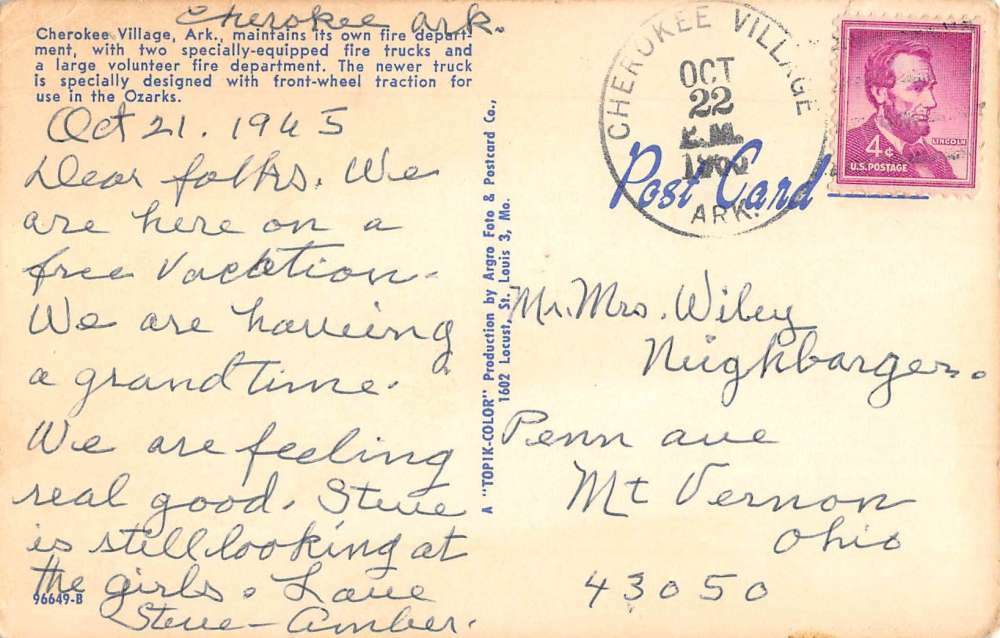 Cherokee Ark.
Cherokee Village, Ark., maintains its own fire depart-
ment, with two specially-equipped fire trucks and
a large volunteer fire department. The newer truck
is specially designed with front-wheel traction for
use in the Ozarks.
Oct 21. 1965
Dear folks. We
are here on a
free vacation.
We are haveing
a grand time.
We are feeling
real good. Steve
is still looking at
the girls. Love
Steve - Amber.
96649-B
A "TOPIK-COLOR" Production by Argro Foto & Postcard Co.,
1602 Locust, St. Louis 3, Mo.
CHEROKEE VILLAGE
OCT
22
P.M.
ARK.
Post Card
LINCOLN
4¢
U.S. POSTAGE
Mr. Mrs. Wiley
Neighbarger.
Penn ave
Mt Vernon
Ohio
43050